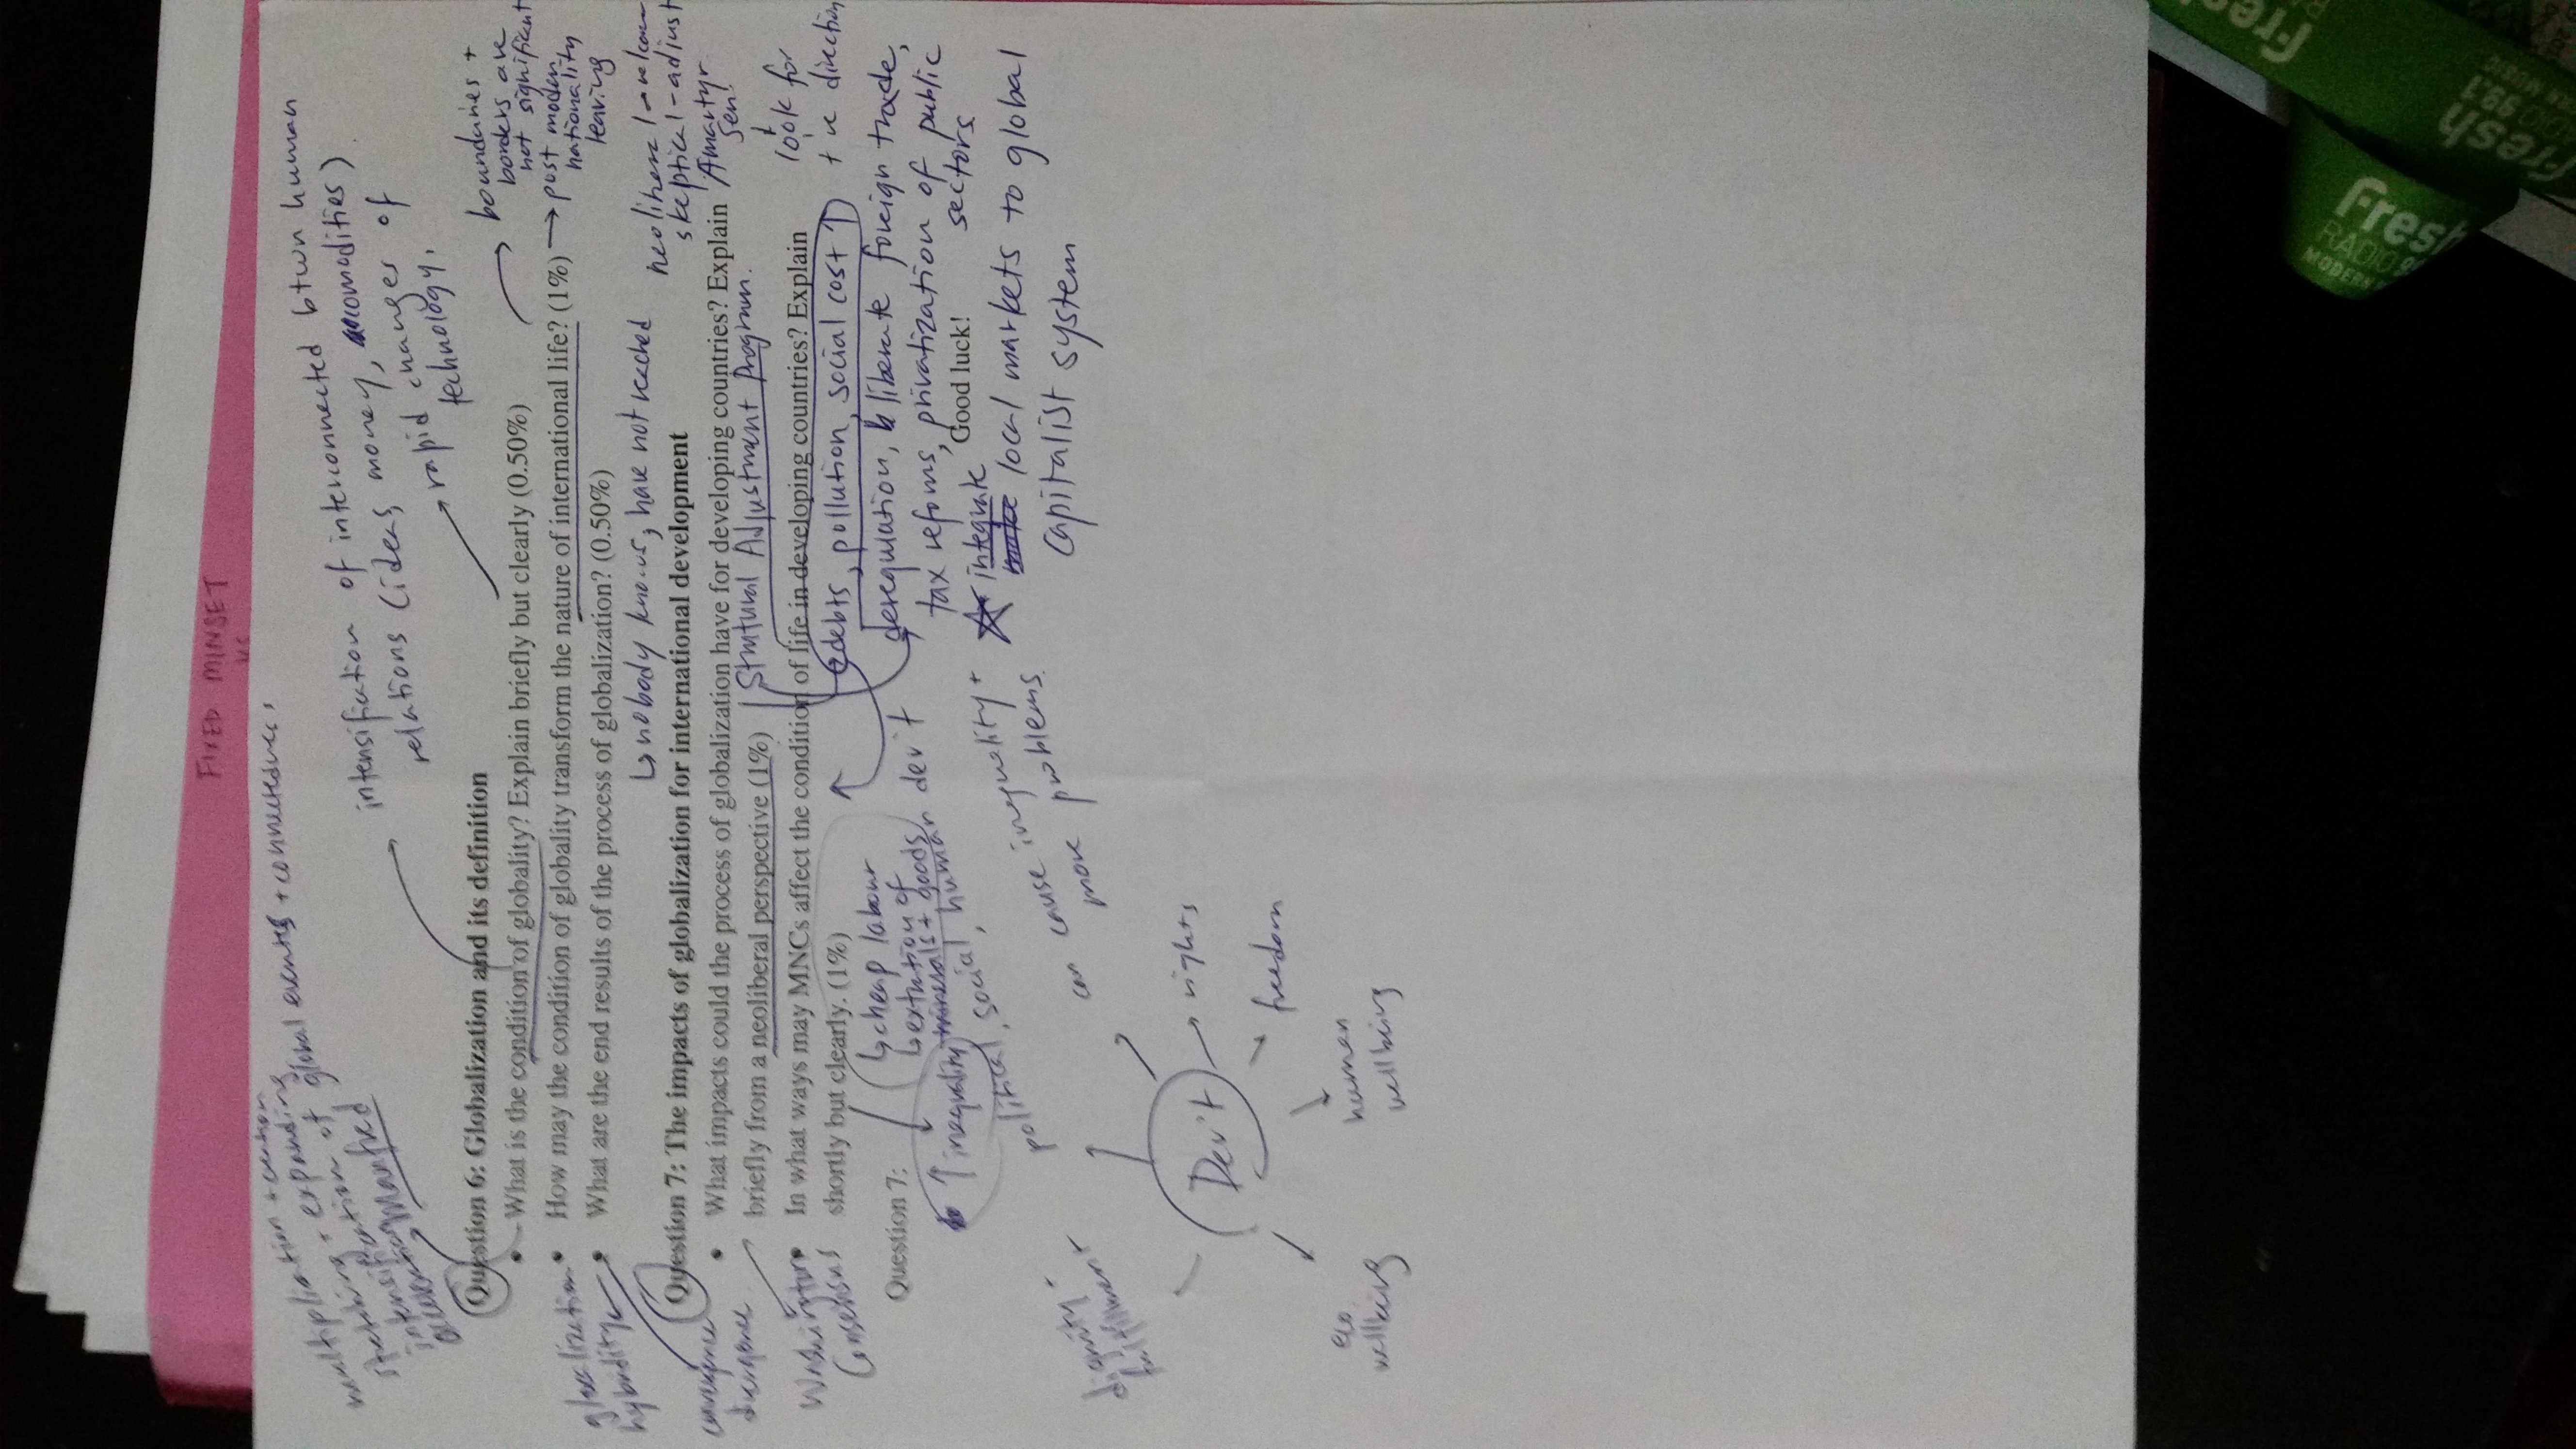 FIXED MINSET
VS
multiplication + creation
stretching + expanding
intensification of global events + connectedness,
intensification of interconnected btwn human
relations (ideas, money, commodities)
rapid changes of
technology.
boundaries +
borders are
not significant
→ post modern
nationality
leaving
Question 6: Globalization and its definition
• What is the condition of globality? Explain briefly but clearly (0.50%)
• How may the condition of globality transform the nature of international life? (1%)
• What are the end results of the process of globalization? (0.50%)
glocalization
hybridity
↳ nobody knows, have not reached
neoliberal → welcome
skeptical - adjust
Amartyr
Sen
look for
+ve direction
Question 7: The impacts of globalization for international development
• What impacts could the process of globalization have for developing countries? Explain
briefly from a neoliberal perspective (1%)
Structural Adjustment Program.
• In what ways may MNCs affect the condition of life in developing countries? Explain
shortly but clearly. (1%)
convergence
divergence
Washington
Consensus
debts, pollution, social cost ↑
deregulation, liberate foreign trade,
tax reforms, privatization of public
sectors
Good luck!
integrate
local markets to global
capitalist system
Question 7:
↳ cheap labour
↳ extraction of
minerals + goods
↑ inequality
political, social, human dev't
can cause inequality +
more problems.
Dev't
rights
freedom
human
wellbeing
eco
wellbeing
dignity
fulfilment
Fresh
RADIO
MODERN
Fresh
99.1
MUSIC
Fresh